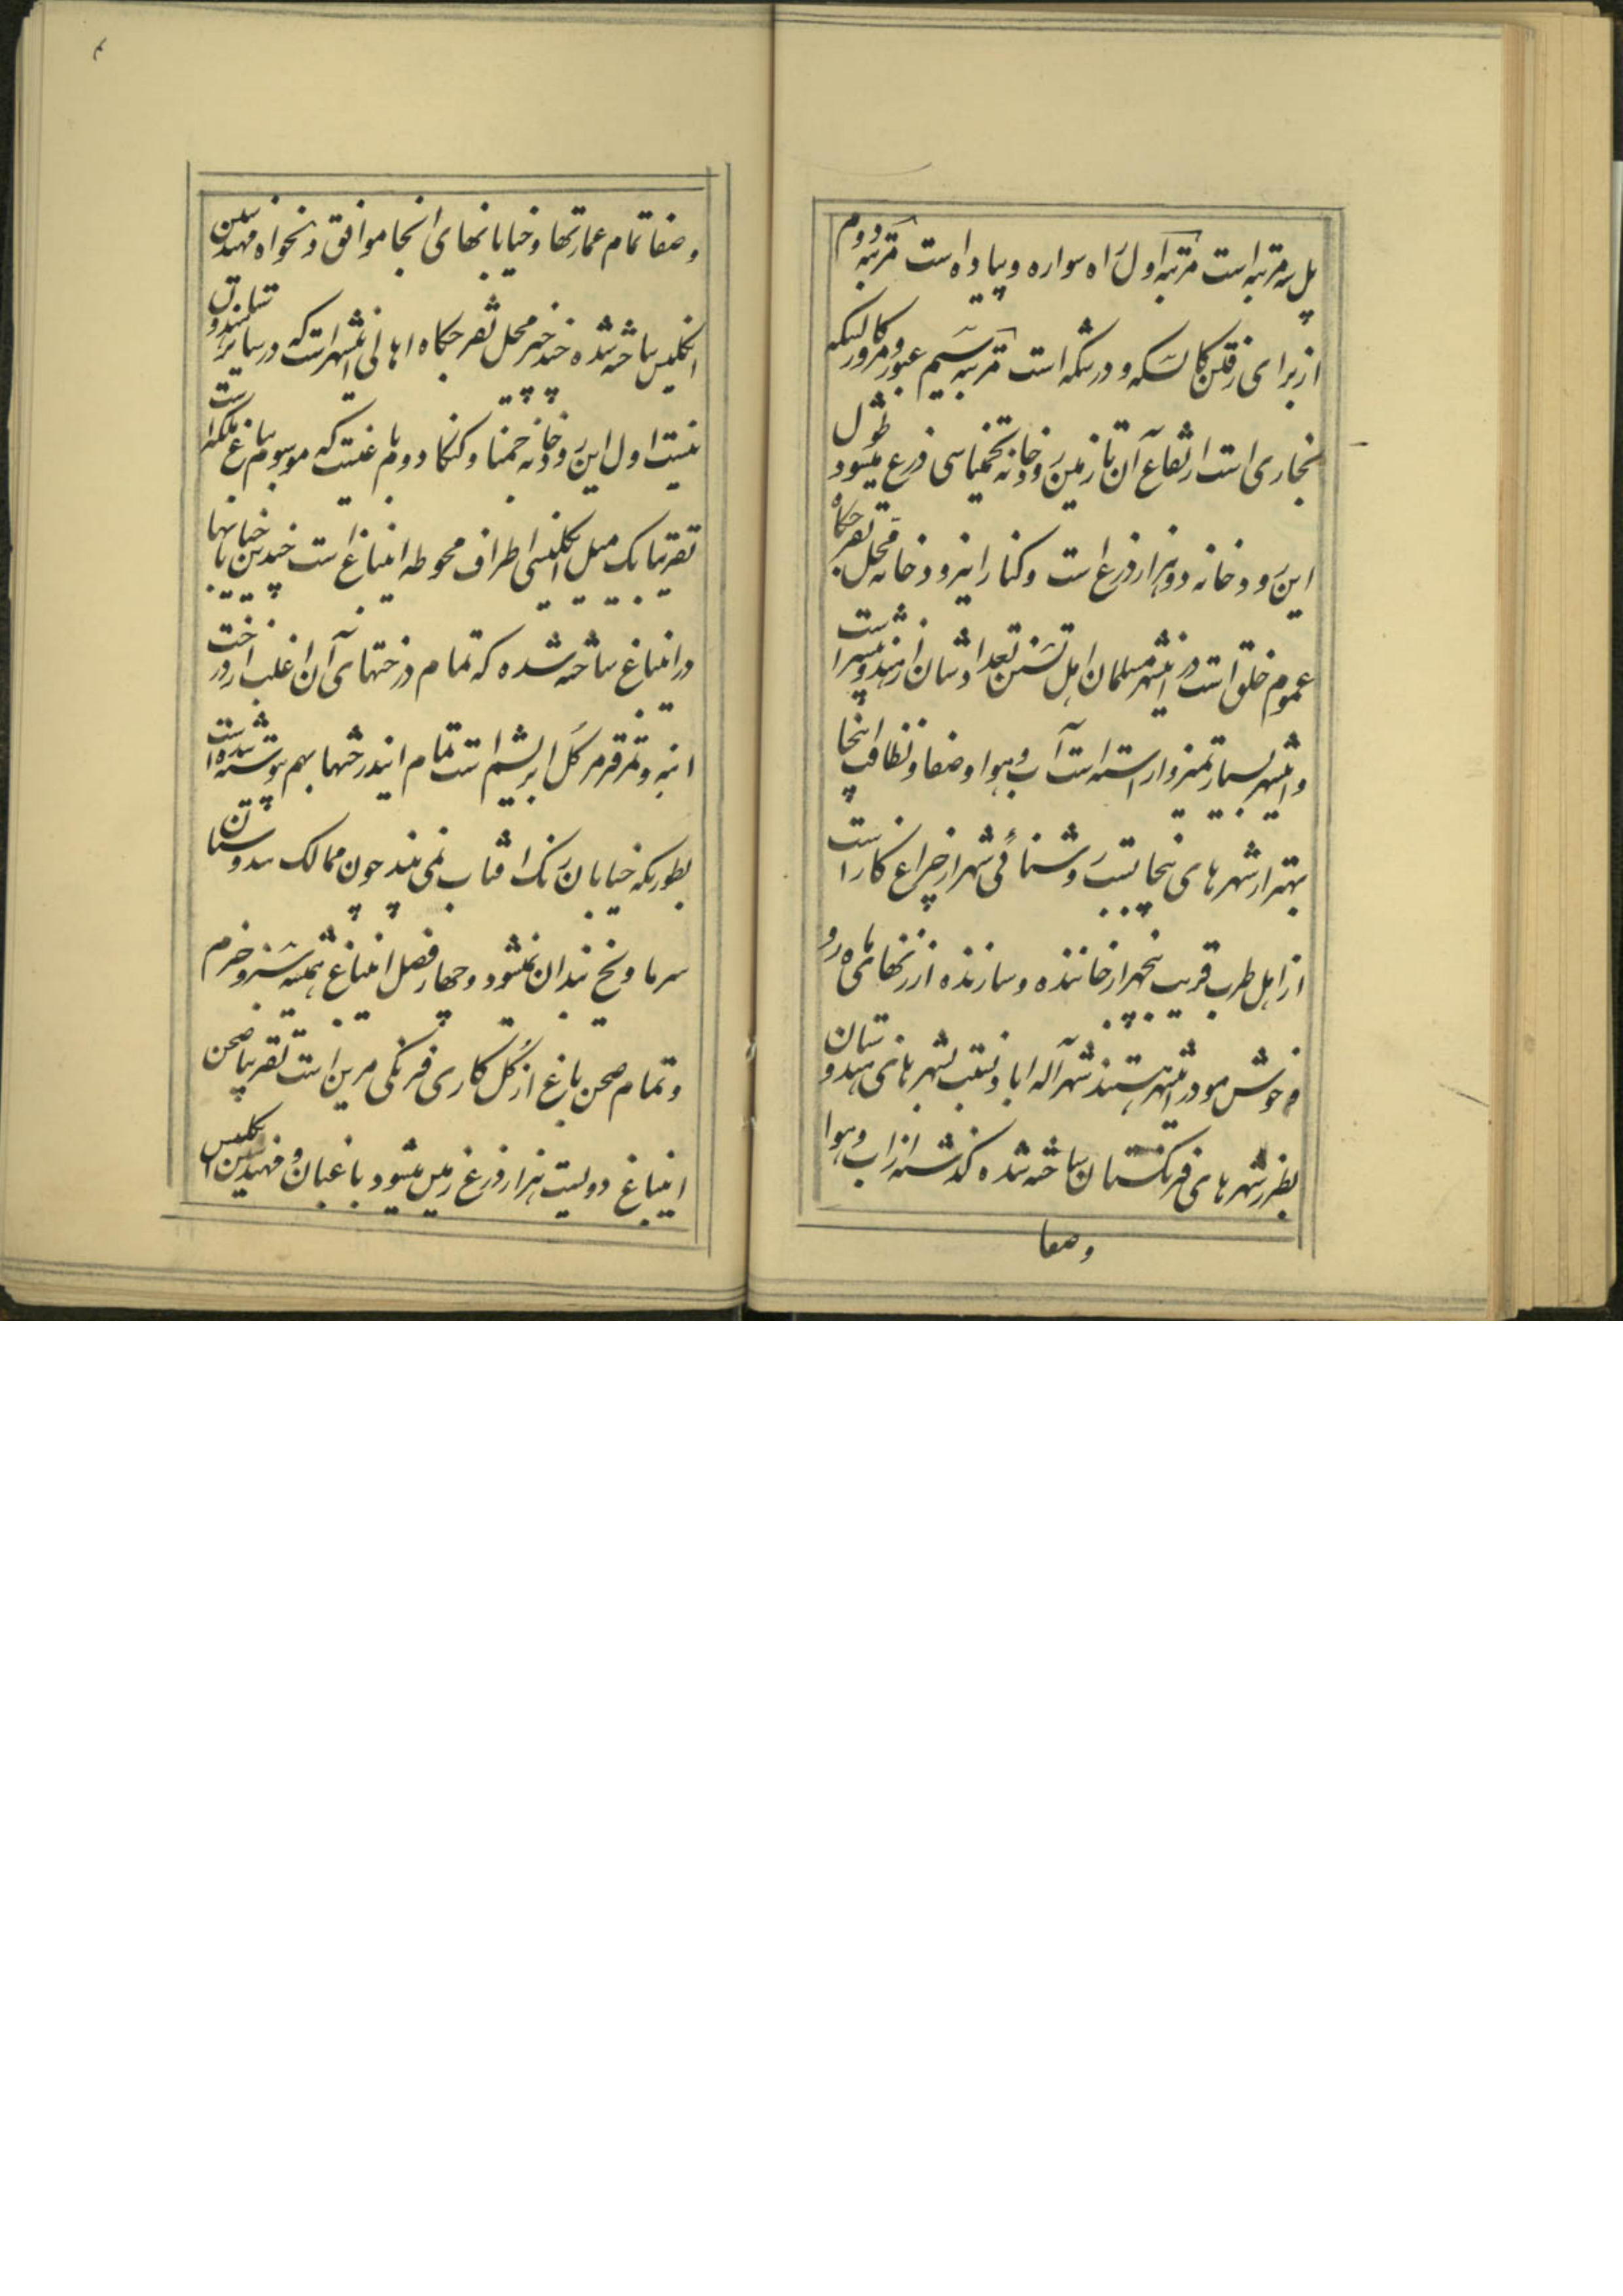 پل سه مرتبه است مرتبه اول راه سواره و پیاده است مرتبه دوم
از برای رفتن کالسکه و درشکه است مرتبه سیم عبور و مرور کالسکه
بخاری است ارتفاع آن تا زمین رودخانه تخمینا سی ذرع میشود طول
این رودخانه دو هزار ذرع است و کنار این رودخانه محل تفرجکاه
عموم خلق است در اینشهر مسلمان اهل تسنن تعدادشان از هندو بیشتر است
و اینشهر بسیار تمیز و اراسته است آب و هوا و صفا و نظافت اینجا
بهتر از شهرهای پنجابست و روشنائی شهر از چراغ کاز است
از اهل طرب قریب پنجهزار خاننده و سازنده از زنهای ماه رو
و خوش مو در اینشهر هستند شهر آله اباد نسبت بشهرهای هندوستان
بطرز شهرهای فرنکستان ساخته شده کذشته از اب و هوا
وصفا
۴
و صفا تمام عمارتها و خیابانهای انجا موافق دلخواه مهندسین
انکلیس ساخته شده چند چیز محل تفرجکاه اهالی اینشهر است که در سایر هندوستان
نیست اول این رودخانه جمنا و کنکا دویم باغیست که موسوم بباغ ملکه است
تقریبا یک میل انکلیسی اطراف محوطه اینباغ است چندین خیابانها
در اینباغ ساخته شده که تمام درختهای آن اغلب از درخت
انبه و تمر قرمز کل ابریشم است تمام ایندرختها بهم پیوسته شده است
بطوریکه خیابان رنک افتاب نمی بیند چون ممالک هندوستان
سرما و یخ بندان نمیشود و چهار فصل اینباغ همیشه سبز و خرم
و تمام صحن باغ از کل کاری فرنکی مزین است تقریبا صحن
اینباغ دویست هزار ذرع زمین میشود باغبان و مهندسین انکلیس